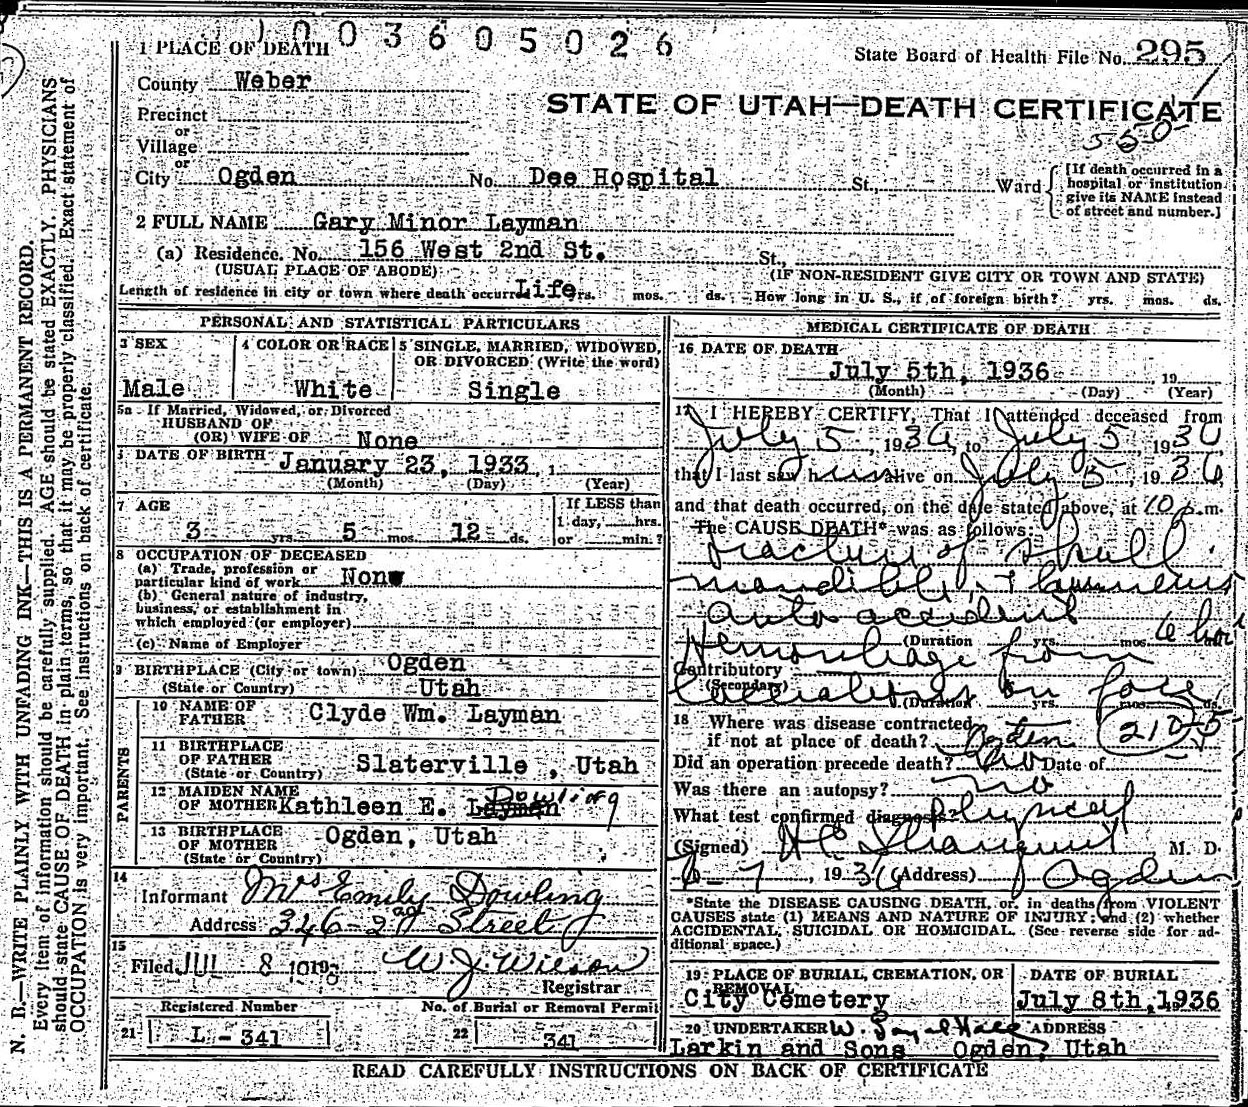 1003605026
1 PLACE OF DEATH
State Board of Health File No. 295
County Weber
STATE OF UTAH—DEATH CERTIFICATE
Precinct
or
Village
or
City Ogden No. Dee Hospital St., Ward
[If death occurred in a
hospital or institution
give its NAME instead
of street and number.]
2 FULL NAME Gary Minor Layman
(a) Residence. No. 156 West 2nd St. St.,
(USUAL PLACE OF ABODE) (IF NON-RESIDENT GIVE CITY OR TOWN AND STATE)
Length of residence in city or town where death occurred Life yrs. mos. ds. How long in U. S., if of foreign birth? yrs. mos. ds.
PERSONAL AND STATISTICAL PARTICULARS
3 SEX
Male
4 COLOR OR RACE
White
5 SINGLE, MARRIED, WIDOWED,
OR DIVORCED (Write the word)
Single
5a If Married, Widowed, or Divorced
HUSBAND OF
(OR) WIFE OF None
DATE OF BIRTH January 23, 1933, 1
(Month) (Day) (Year)
7 AGE
3 yrs. 5 mos. 12 ds.
If LESS than
1 day, hrs.
or min.?
8 OCCUPATION OF DECEASED
(a) Trade, profession or
particular kind of work None
(b) General nature of industry,
business, or establishment in
which employed (or employer)
(c) Name of Employer
9 BIRTHPLACE (City or town) Ogden
(State or Country) Utah
PARENTS
10 NAME OF
FATHER Clyde Wm. Layman
11 BIRTHPLACE
OF FATHER
(State or Country) Slaterville , Utah
12 MAIDEN NAME
OF MOTHER Kathleen E. Layman Dowling
13 BIRTHPLACE
OF MOTHER
(State or Country) Ogden, Utah
14
Informant Mrs Emily Dowling
Address 346-2nd Street
15
Filed JUL 8 W J. Wilson
Registrar
Registered Number
21 L - 341
No. of Burial or Removal Permit
22 341
MEDICAL CERTIFICATE OF DEATH
16 DATE OF DEATH
July 5th, 1936 , 19
(Month) (Day) (Year)
17 I HEREBY CERTIFY, That I attended deceased from
July 5, 1936, to July 5, 1936
that I last saw him alive on July 5, 1936,
and that death occurred, on the date stated above, at 10 p.m.
The CAUSE DEATH* was as follows:
Fracture of skull
mandible, +
auto accident
(Duration yrs. mos. 6 hou
Hemorrhage from
Contributory
(Secondary)
lacerations on face
(Duration yrs. mos. ds.
18 Where was disease contracted
if not at place of death? Ogden 210-5
Did an operation precede death? No Date of
Was there an autopsy? no
What test confirmed diagnosis? Physical
(Signed) M. D.
7, 1936 (Address) Ogden
*State the DISEASE CAUSING DEATH, or, in deaths from VIOLENT
CAUSES state (1) MEANS AND NATURE OF INJURY; and (2) whether
ACCIDENTAL, SUICIDAL OR HOMICIDAL. (See reverse side for ad-
ditional space.)
19 PLACE OF BURIAL, CREMATION, OR
REMOVAL
City Cemetery
DATE OF BURIAL
July 8th, 1936
20 UNDERTAKER ADDRESS
Larkin and Sons Ogden, Utah
READ CAREFULLY INSTRUCTIONS ON BACK OF CERTIFICATE
N. B.—WRITE PLAINLY WITH UNFADING INK—THIS IS A PERMANENT RECORD.
Every item of information should be carefully supplied. AGE should be stated EXACTLY. PHYSICIANS
should state CAUSE OF DEATH in plain terms, so that it may be properly classified. Exact statement of
OCCUPATION is very important. See instructions on back of certificate.